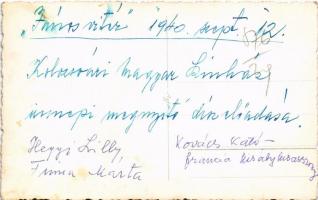 "János vitéz" 1940. szept. 12.
Kolozsvári Magyar Színház
ünnepi megnyitó díszelőadása.
Hegyi Lilly
Kovács Kató -
francia királykisasszony
Márta